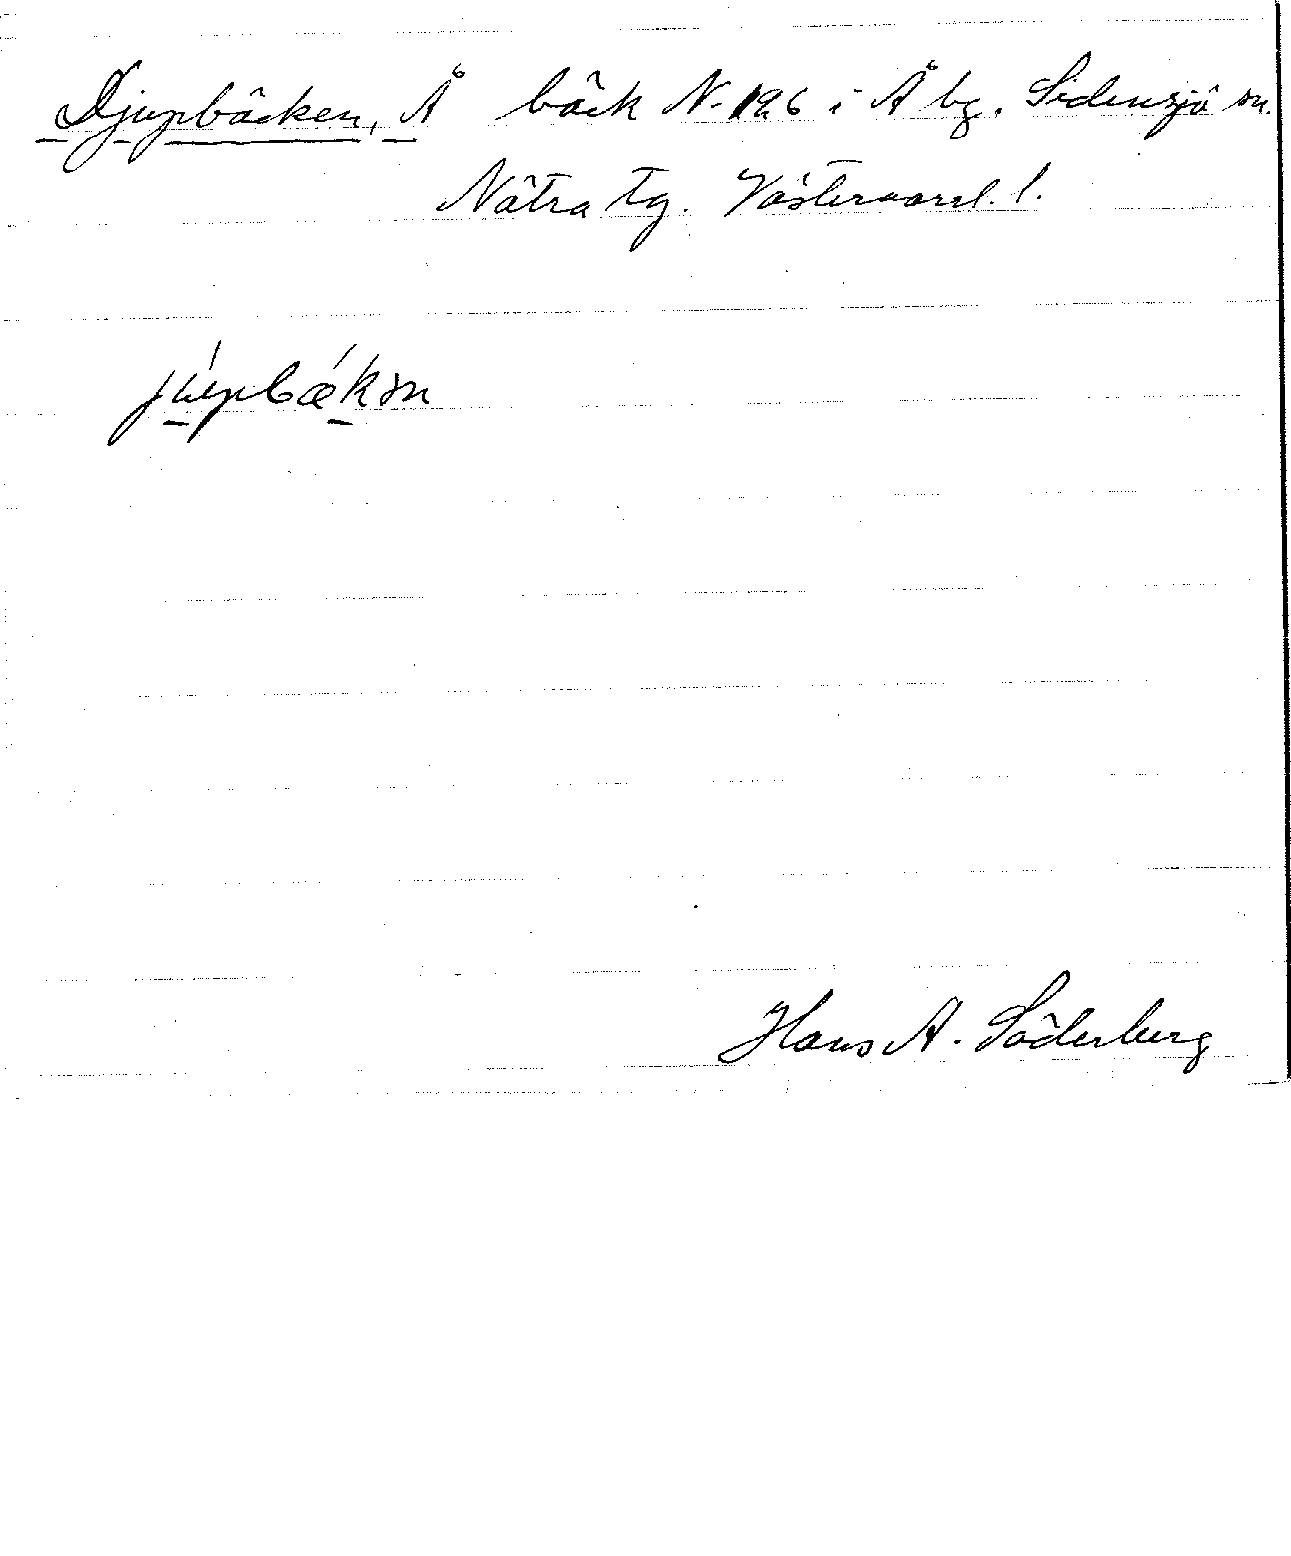 Djupbäcken, Å bäck N. 196 i Å bg. Sidensjö sn.
Nätra tg. Västernorrl. l.
júpbǽkən
Hans A. Söderberg